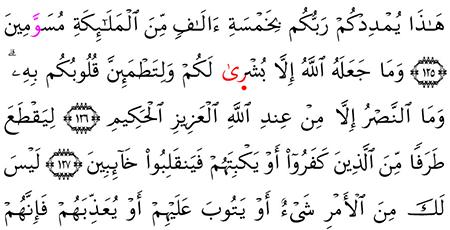 هَٰذَا يُمۡدِدۡكُمۡ رَبُّكُم بِخَمۡسَةِ ءَالَٰفٖ مِّنَ ٱلۡمَلَٰٓئِكَةِ مُسَوَّمِينَ
﴿١٢٥﴾ وَمَا جَعَلَهُ ٱللَّهُ إِلَّا بُشۡر۪ىٰ لَكُمۡ وَلِتَطۡمَئِنَّ قُلُوبُكُم بِهِۦۗ
وَمَا ٱلنَّصۡرُ إِلَّا مِنۡ عِندِ ٱللَّهِ ٱلۡعَزِيزِ ٱلۡحَكِيمِ ﴿١٢٦﴾ لِيَقۡطَعَ
طَرَفٗا مِّنَ ٱلَّذِينَ كَفَرُوٓاْ أَوۡ يَكۡبِتَهُمۡ فَيَنقَلِبُواْ خَآئِبِينَ ﴿١٢٧﴾ لَيۡسَ
لَكَ مِنَ ٱلۡأَمۡرِ شَيۡءٌ أَوۡ يَتُوبَ عَلَيۡهِمۡ أَوۡ يُعَذِّبَهُمۡ فَإِنَّهُمۡ